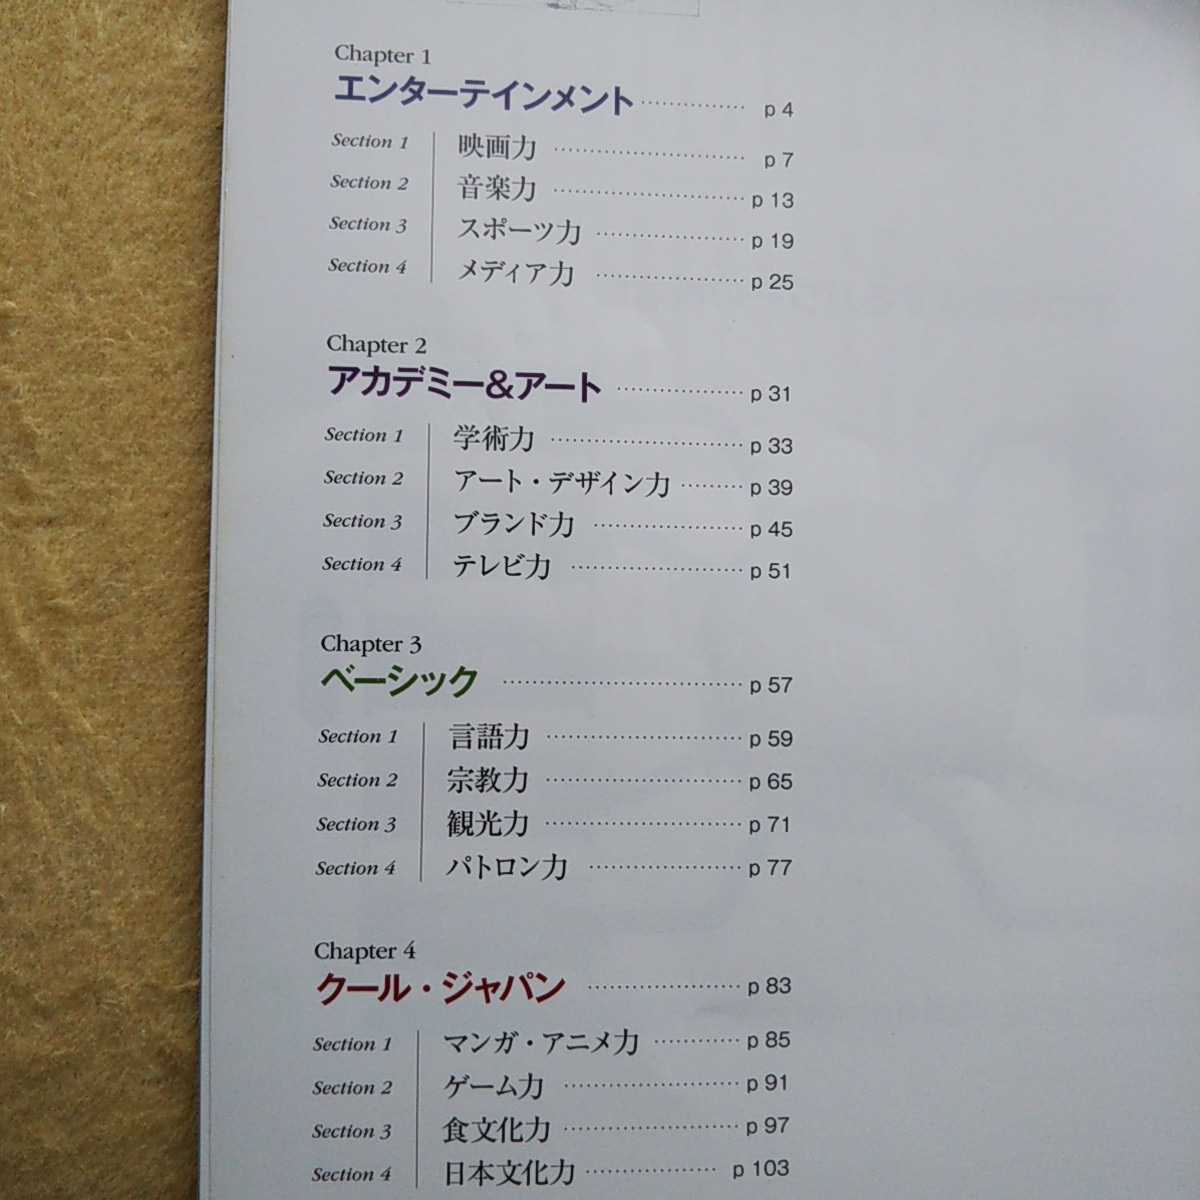 Chapter 1
エンターテインメント ·············· p 4
Section 1 映画力 ·························· p 7
Section 2 音楽力 ·························· p 13
Section 3 スポーツ力 ···················· p 19
Section 4 メディア力 ···················· p 25
Chapter 2
アカデミー&アート ·················· p 31
Section 1 学術力 ·························· p 33
Section 2 アート・デザイン力 ········· p 39
Section 3 ブランド力 ····················· p 45
Section 4 テレビ力 ························ p 51
Chapter 3
ベーシック ································· p 57
Section 1 言語力 ··························· p 59
Section 2 宗教力 ··························· p 65
Section 3 観光力 ··························· p 71
Section 4 パトロン力 ····················· p 77
Chapter 4
クール・ジャパン ····················· p 83
Section 1 マンガ・アニメ力 ············ p 85
Section 2 ゲーム力 ························ p 91
Section 3 食文化力 ························ p 97
Section 4 日本文化力 ·················· p 103